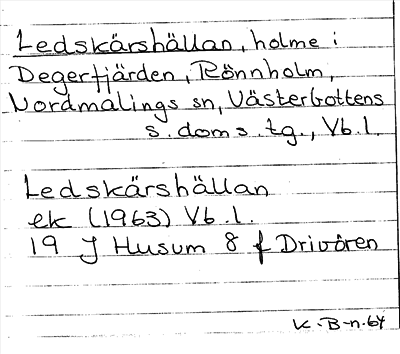 Ledskärshällan, holme i
Degerfjärden, Rönnholm,
Nordmalings sn, Västerbottens
s. doms. tg., Vb. l.
Ledskärshällan
ek (1963) Vb. l.
19 J Husum 8 f Drivören
K-B-n.64